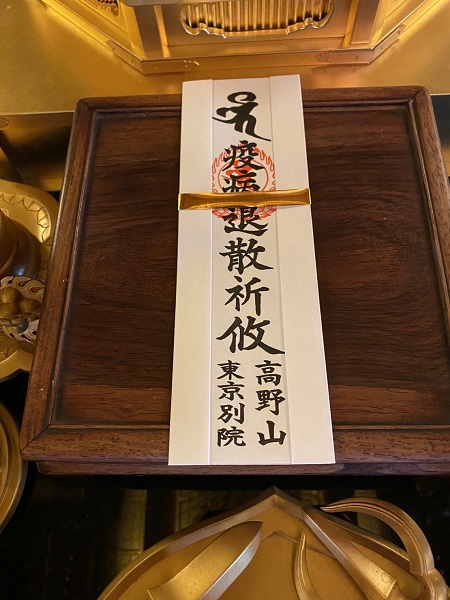 疫病退散祈攸
高野山
東京別院